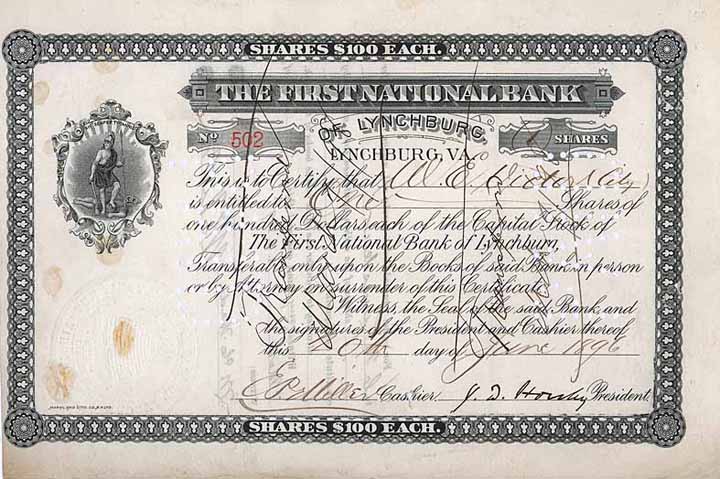 SHARES $100 EACH.
THE FIRST NATIONAL BANK
OF LYNCHBURG.
No 502
1 SHARES
LYNCHBURG, VA.
This is to Certify that W. E. (City)
is entitled to One Shares of
one hundred Dollars each of the Capital Stock of
The First National Bank of Lynchburg,
Transferable only upon the Books of said Bank in person
or by Attorney on surrender of this Certificate
Witness, the Seal of the said Bank, and
the signatures of the President and Cashier thereof
this 20th day of June 1896
E. P. Miller Cashier, J. D. President.
SHARES $100 EACH.